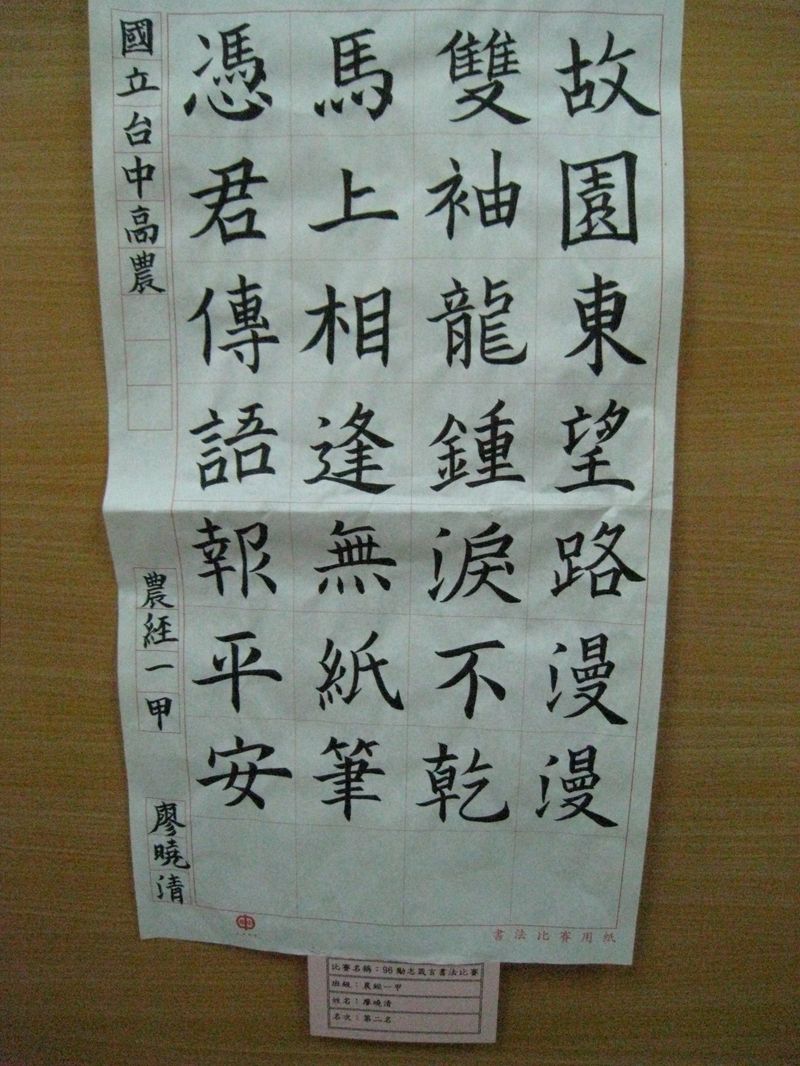 故園東望路漫漫
雙袖龍鍾淚不乾
馬上相逢無紙筆
憑君傳語報平安
國立台中高農
農經一甲
廖曉清
書法比賽用紙
比賽名稱：96勵志箴言書法比賽
班級：農經一甲
姓名：廖曉清
名次：第二名